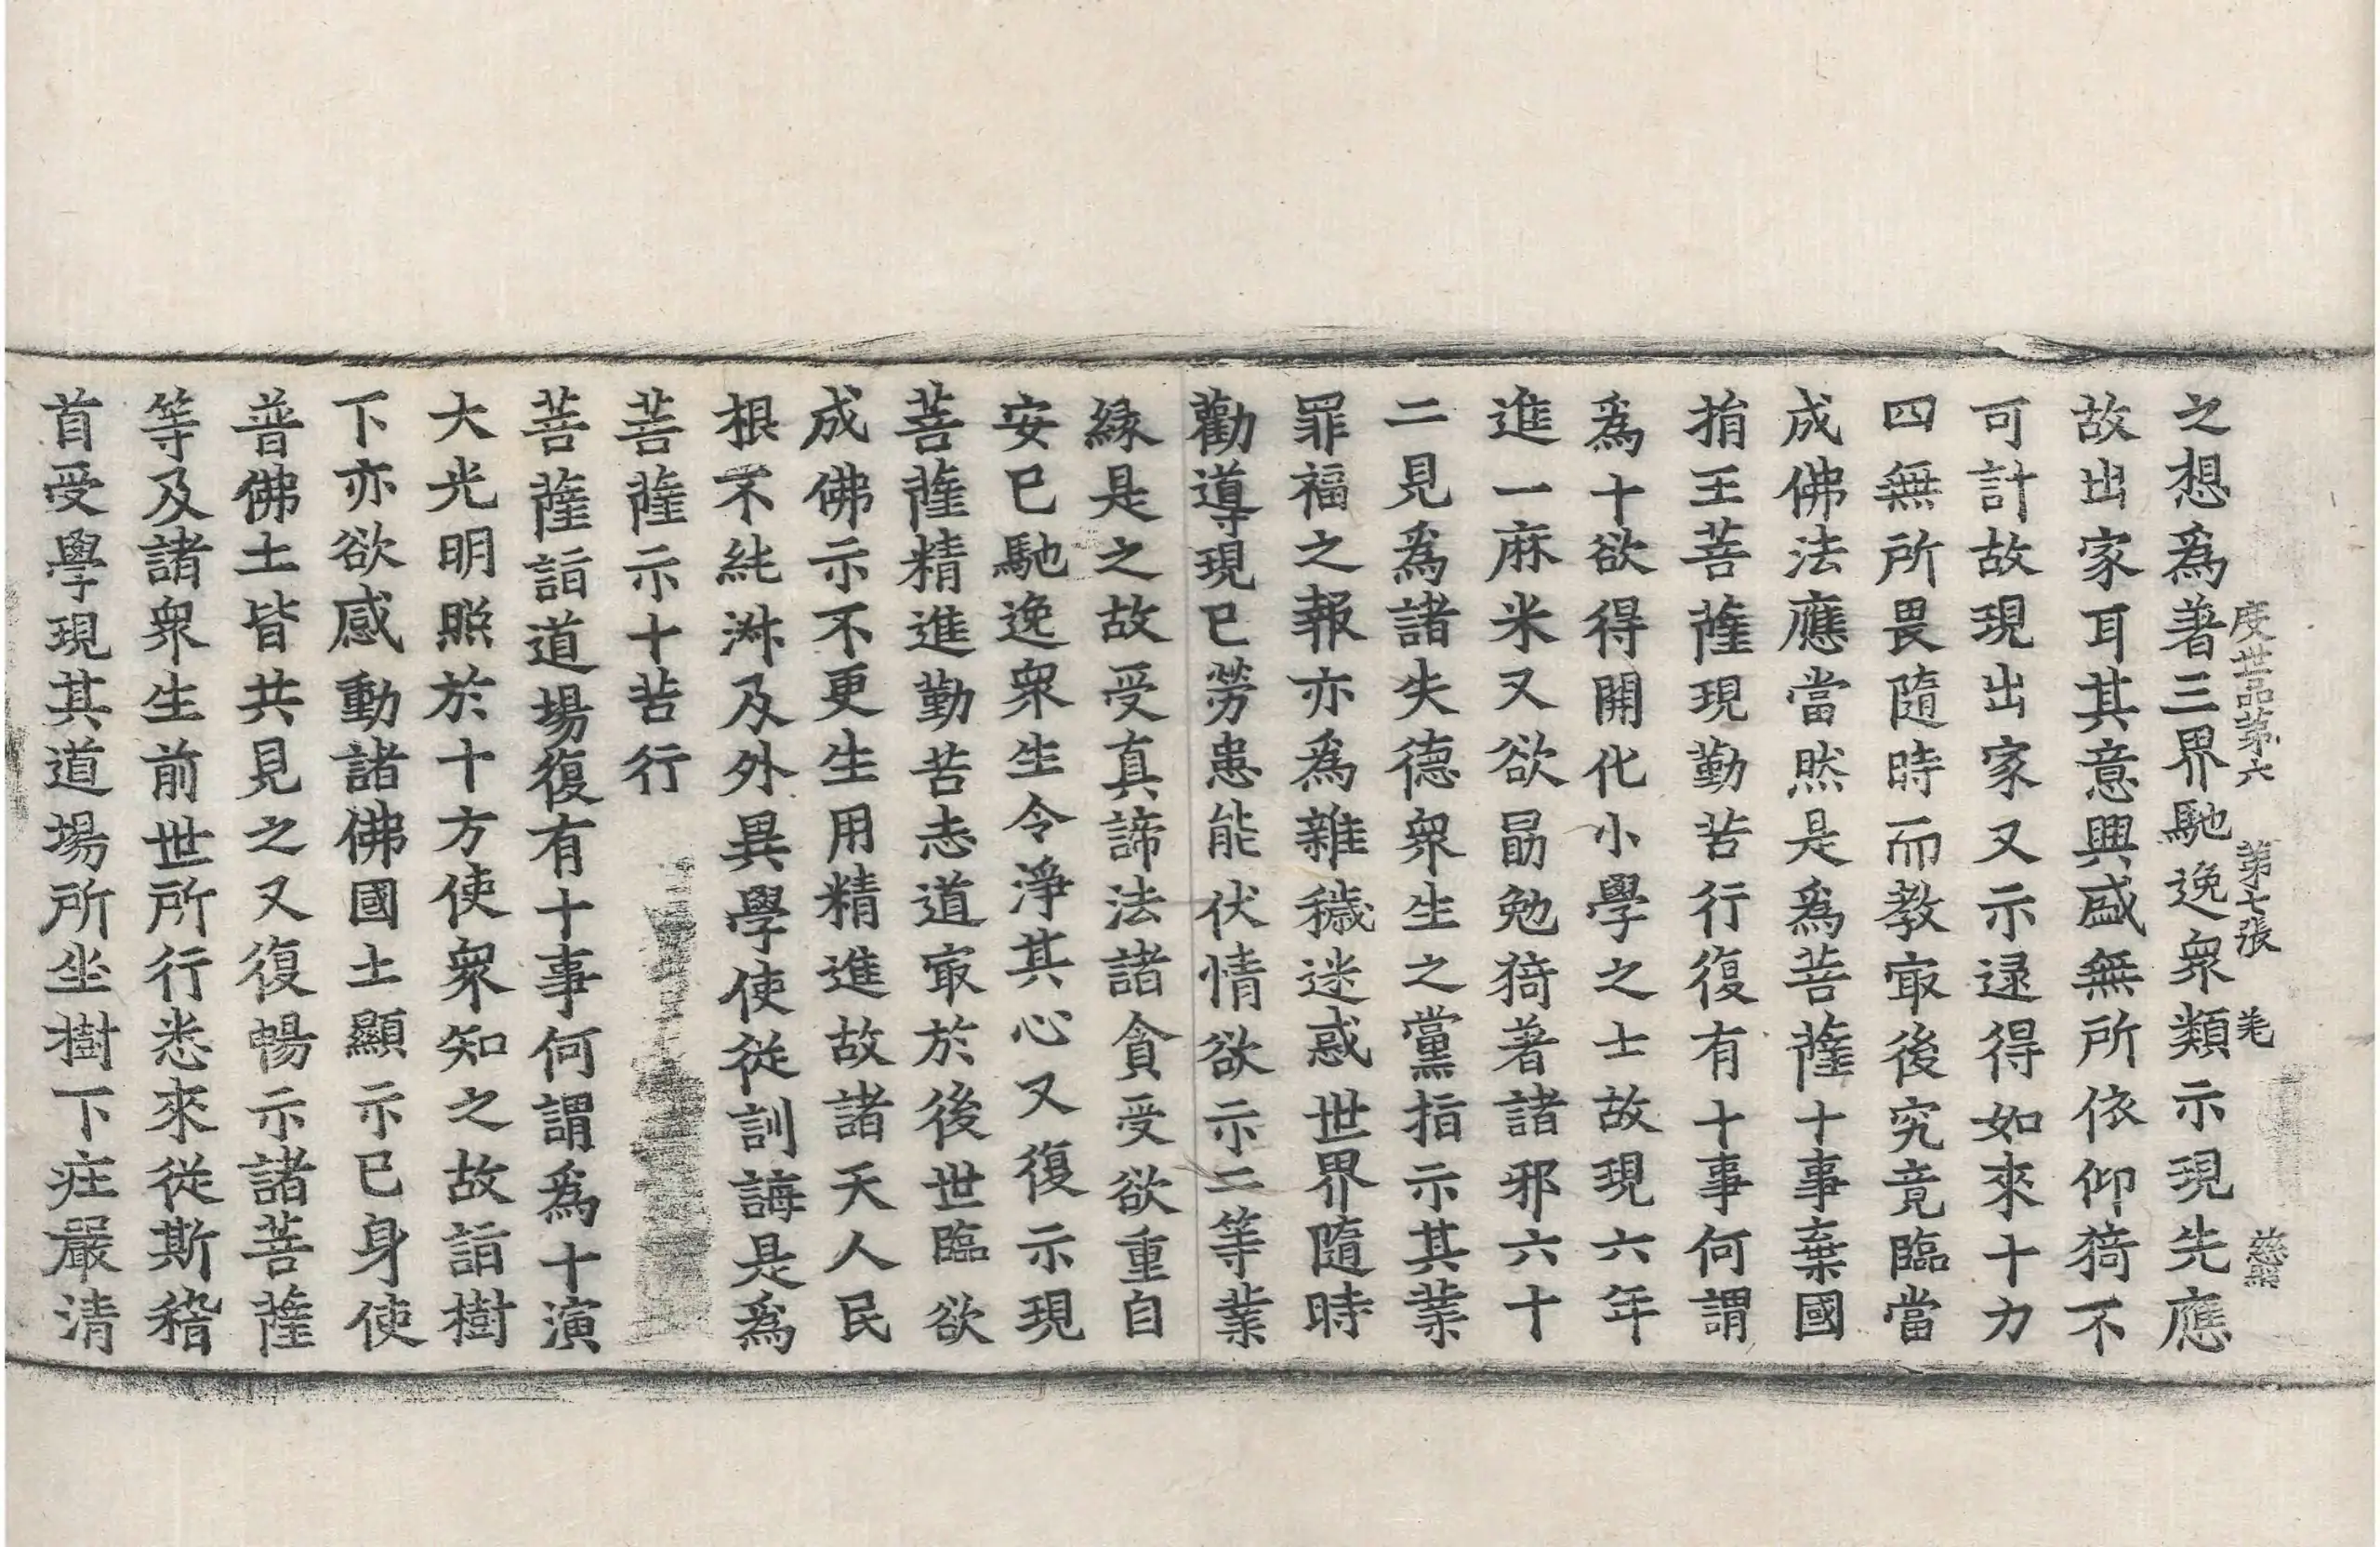 度世品第六　第七張　羌　慈照
之想爲著三界馳逸衆類示現先應
故出家耳其意興盛無所依仰猗不
可計故現出家又示逮得如來十力
四無所畏隨時而教㝡後究竟臨當
成佛法應當然是爲菩薩十事棄國
捐王菩薩現勤苦行復有十事何謂
爲十欲得開化小學之士故現六年
進一麻米又欲勗勉猗著諸邪六十
二見爲諸失德衆生之黨指示其業
罪福之報亦爲雜穢迷惑世界隨時
勸導現已勞患能伏情欲示二等業
緣是之故受真諦法諸貪受欲重自
安已馳逸衆生令淨其心又復示現
菩薩精進勤苦志道㝡於後世臨欲
成佛示不更生用精進故諸天人民
根不純淑及外異學使從訓誨是爲
菩薩示十苦行
菩薩詣道場復有十事何謂爲十演
大光明照於十方使衆知之故詣樹
下亦欲感動諸佛國土顯示已身使
普佛土皆共見之又復暢示諸菩薩
等及諸衆生前世所行悉來從斯稽
首受學現其道場所坐樹下莊嚴清